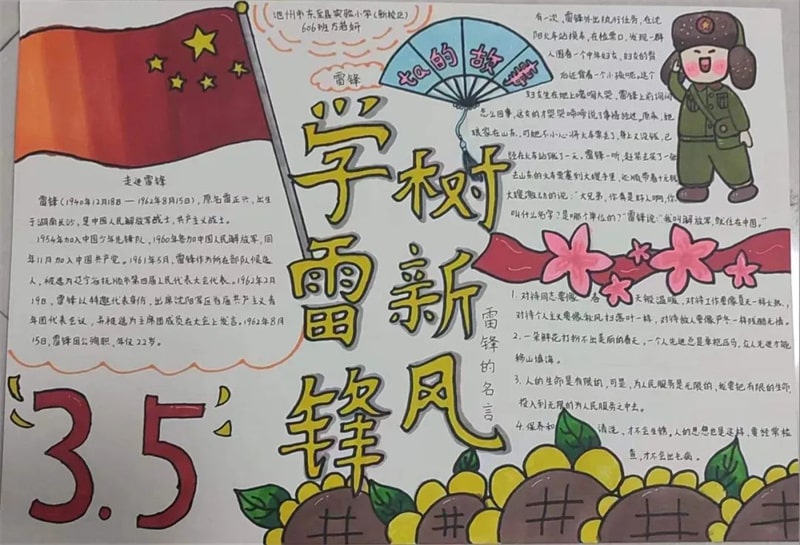 池州市东至县实验小学(新校区)
606班方若妍
雷锋
ta的故事
学雷锋
树新风
走进雷锋
雷锋(1940年12月18日—1962年8月15日),原名雷正兴,出生
于湖南长沙,是中国人民解放军战士,共产主义战士。
1954年加入中国少年先锋队,1960年参加中国人民解放军,同
年11月加入中国共产党。1961年5月,雷锋作为所在部队候选
人,被选为辽宁省抚顺市第四届人民代表大会代表。1962年2月
19日,雷锋以特邀代表身份,出席沈阳军区首届共产主义青
年团代表会议,名被选为主席团成员在大会上发言。1962年8月
15日,雷锋因公殉职,年仅22岁。
3.5
有一次,雷锋外出执行任务,在沈
阳火车站换车,在检票口,发现一群
人围着一个中年妇女,妇女的背
后还背着一个小孩呢。这个
妇女坐在地上嚎啕大哭,雷锋上前询问
怎么回事,这女的才哭哭啼啼说了事情经过。原来,她
娘家在山东,可她不小心将火车票丢了,身上又没钱,已
经在火车站饿了一天,雷锋一听,赶紧去买了一张
去山东的火车票塞到大嫂手里,还顺带着干粮
大嫂激动的说:“大兄弟,你真是好人啊,你
叫什么名字?是哪个单位的?”雷锋说:“我叫解放军,就住在中国。”
雷锋的名言
1. 对待同志要像春天般温暖,对待工作要像夏天一样火热,
对待个人主义要像秋风扫落叶一样,对待敌人要像严冬一样残酷无情。
2. 一朵鲜花打扮不出美丽的春天,一个人先进总是单枪匹马,众人先进才能
移山填海。
3. 人的生命是有限的,可是,为人民服务是无限的,我要把有限的生命,
投入到无限的为人民服务之中去。
4. 保养和清洗,才不会生锈。人的思想也是这样,要经常检
查,才不会出毛病。